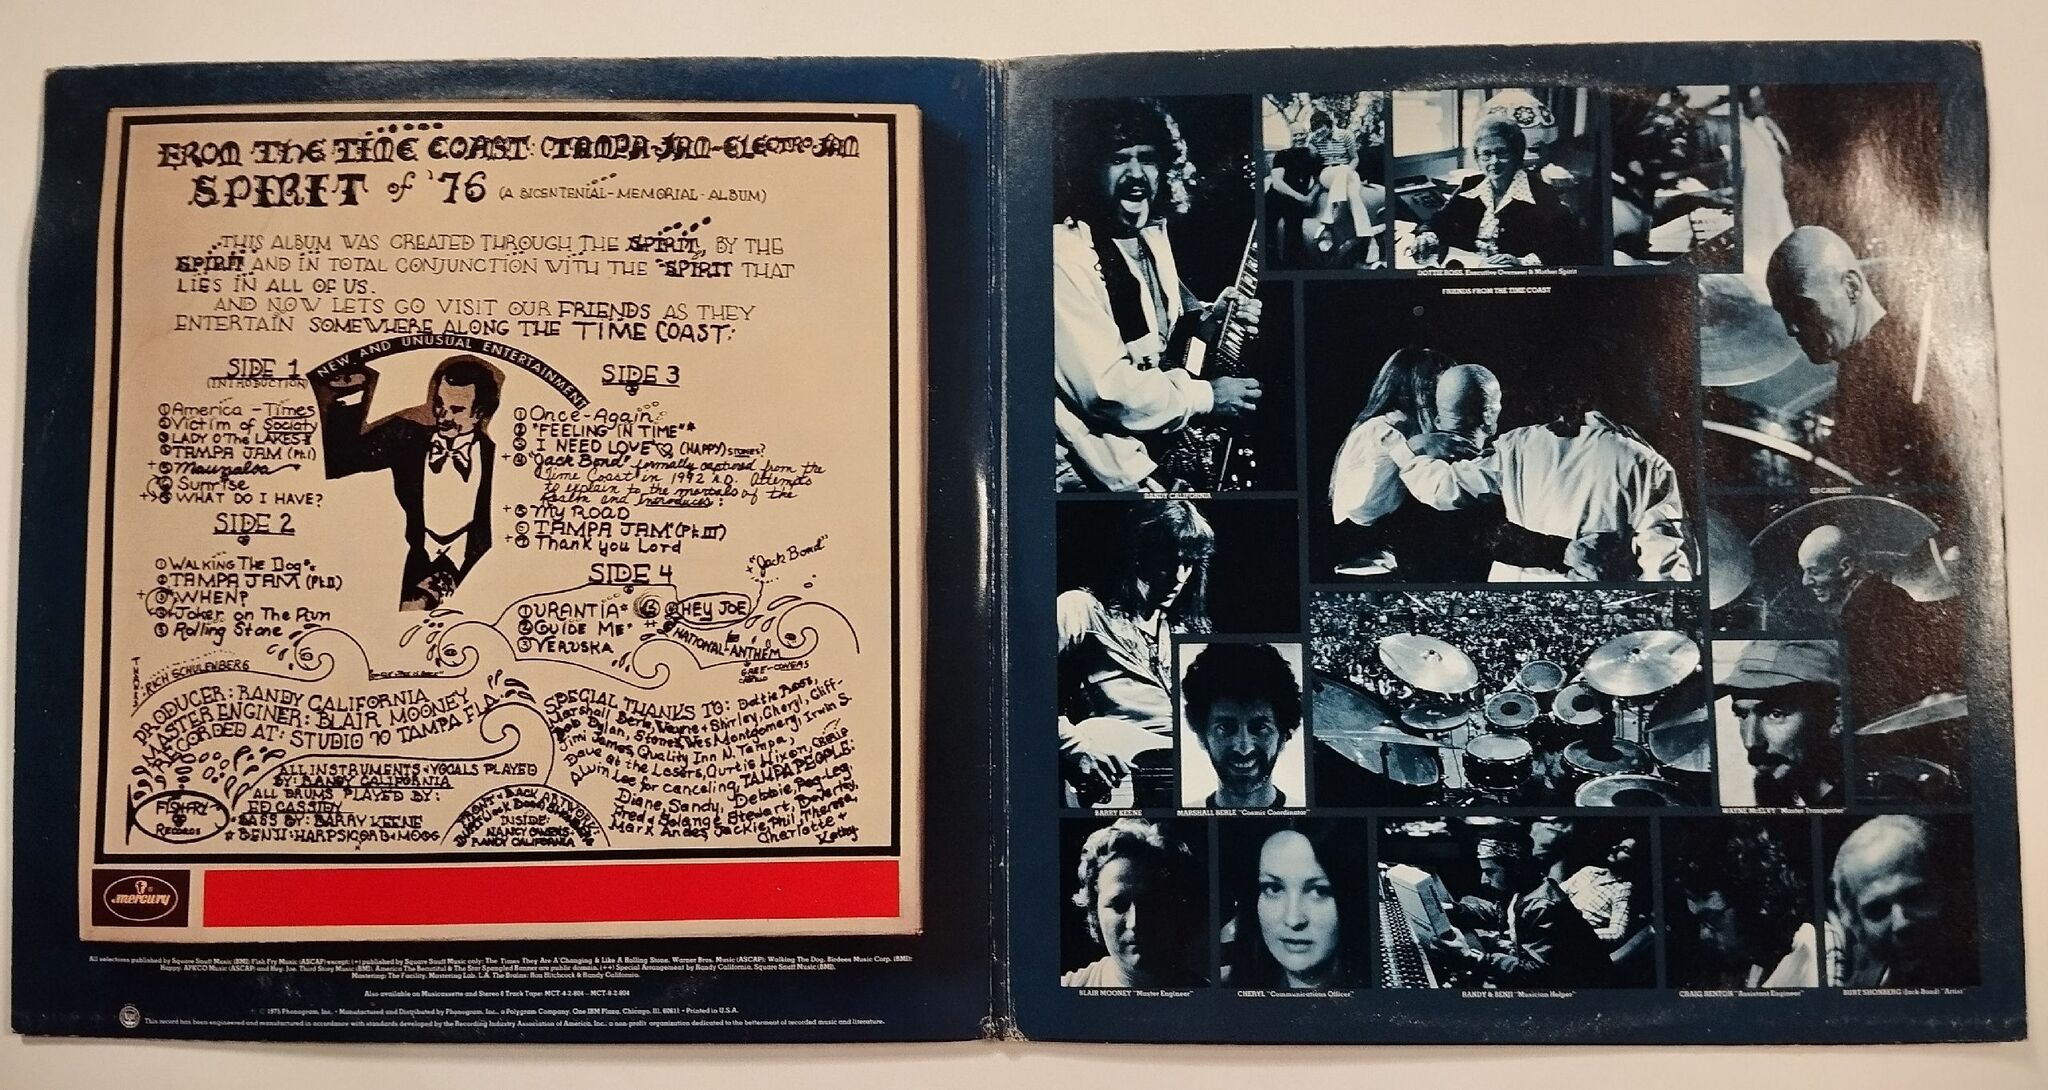 FROM THE TIME COAST: (TAMPA-JAM-ELECTRO-JAM
SPIRIT of '76 (A BICENTENIAL-MEMORIAL-ALBUM)
THIS ALBUM WAS CREATED THROUGH THE SPIRIT, BY THE
SPIRIT AND IN TOTAL CONJUNCTION WITH THE "SPIRIT THAT
LIES IN ALL OF US.
AND NOW LETS GO VISIT OUR FRIENDS AS THEY
ENTERTAIN SOMEWHERE ALONG THE TIME COAST:
NEW AND UNUSUAL ENTERTAINMENT
SIDE 1
(INTRODUCTION)
① America - Times
② Victim of Society
③ LADY O'The LAKES
④ TAMPA JAM (Pt. I)
+⑤ Maunaloa
⑥ Sunrise
⑦ WHAT DO I HAVE?
SIDE 2
① WALKING THE Dog*
② TAMPA JAM (Pt. II)
+③ WHEN?
④ Joker on The Run
⑤ Rolling Stone
SIDE 3
① Once-Again
② "FEELING IN TIME"*
③ I NEED LOVE (HAPPY) STONES?
+④ "Jack Bond" formally captured from the
Time Coast in 1992 A.D. Attempts
to explain to the mortals of the
Realm and Introduces:
+⑤ My ROAD
⑥ TAMPA JAM" (Pt. III)
+⑦ Thank you Lord
SIDE 4
① URANTIA*
② GUIDE ME*
③ VERUSKA
HEY JOE
x "Jack Bond"
++ NATIONAL-ANTHEM
THANKS: RICH SCHULENBERG
PRODUCER: RANDY CALIFORNIA
MASTER ENGINER: BLAIR MOONEY
RECORDED AT: STUDIO 70 TAMPA FLA.
ALL INSTRUMENTS + VOCALS PLAYED
BY: RANDY CALIFORNIA
ALL DRUMS PLAYED BY:
ED CASSIDY
BASS BY: BARRY KEENE
* BENJI: HARPSICORD + MOOG
FISH FRY
RECORDS
FRONT + BACK ARTWORK:
INSIDE:
NANCY OWENS
RANDY CALIFORNIA
SPECIAL THANKS TO: Dottie Ross,
Marshall Berle, Wayne + Shirley, Cheryl, Cliff-
Bob Dylan, Stones, Wes Montgomery, Irwin S.
Jimi James, Quality Inn N. Tampa,
Dave at the Losers, Curtis Nixon,
Alvin Lee for canceling, TAMPA PEOPLE:
Diane, Sandy, Debbie, Peg-Leg,
Fred + Solange Stewart, Beverley,
Mark Andes, Jackie, Phil, Theresa,
Charlotte + Kathy
mercury
All selections published by Square Snuff Music (BMI) Fish Fry Music (ASCAP) except: (+) published by Square Snuff Music only: The Times They Are A'Changing & Like A Rolling Stone. Warner Bros. Music (ASCAP): Walking The Dog, Birdees Music Corp. (BMI):
Happy, APKCO Music (ASCAP) and Hey, Joe, Third Story Music (BMI). America The Beautiful & The Star Spangled Banner are public domain. (++) Special Arrangement by Randy California, Square Snuff Music (BMI).
Mastering: The Facility, Mastering Lab. L.A. The Brains: Ron Hitchcock & Randy California.
Also available on Musicassette and Stereo 8 Track Tape: MCT-4-2-804 – MCT-8-2-804
© 1975 Phonogram, Inc. • Manufactured and Distributed by Phonogram, Inc., a Polygram Company, One IBM Plaza, Chicago, Ill. 60611 • Printed in U.S.A.
This record has been engineered and manufactured in accordance with standards developed by the Recording Industry Association of America, Inc., a non-profit organization dedicated to the betterment of recorded music and literature.
DOTTIE ROSS, Executive Overseer & Mother Spirit
FRIENDS FROM THE TIME COAST
RANDY CALIFORNIA
ED CASSIDY
BARRY KEENE
MARSHALL BERLE "Cosmic Coordinator"
WAYNE McELVY "Master Transporter"
BLAIR MOONEY "Master Engineer"
CHERYL "Communications Officer"
RANDY & BENJI "Musician Helper"
CRAIG RENTON "Assistant Engineer"
BURT SHONBERG (Jack-Bond) "Artist"